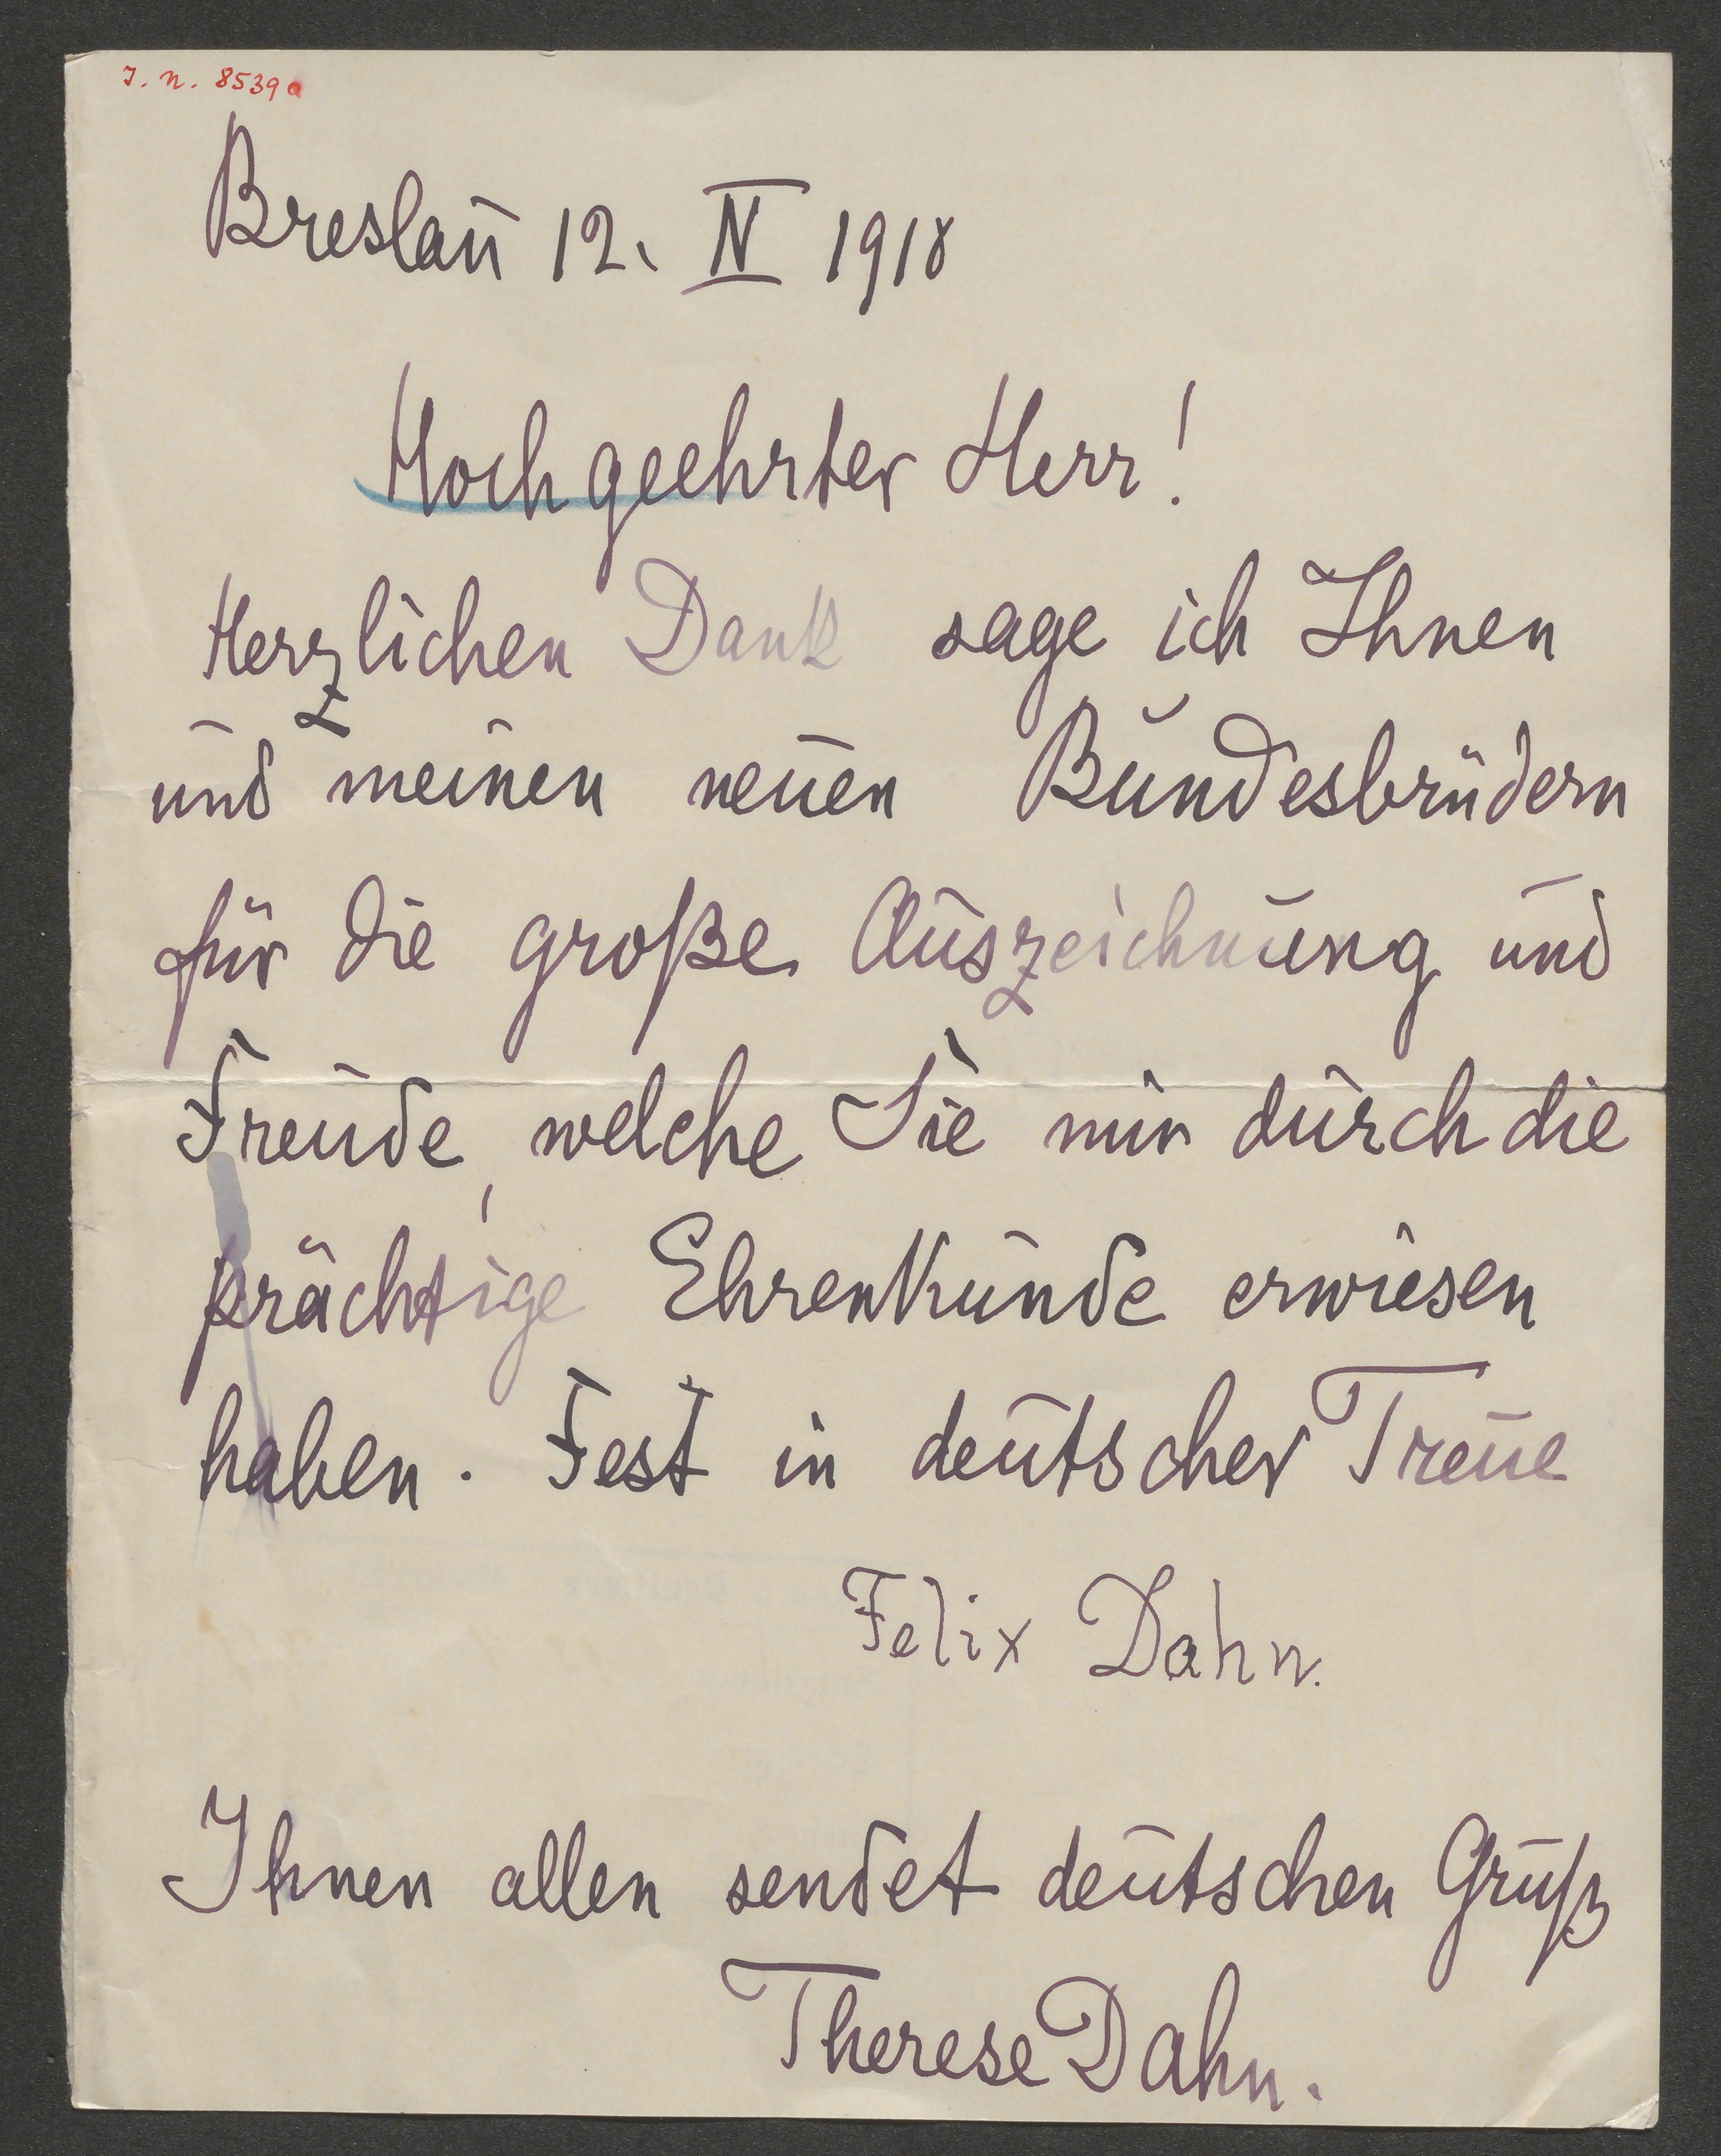 J. N. 8539 a
Breslau 12. IV 1918
Hochgeehrter Herr!
Herzlichen Dank sage ich Ihnen
und meinen neuen Bundesbrüdern
für die große Auszeichnung und
Freude, welche Sie mir durch die
prächtige Ehrenkunde erwiesen
haben. Fest in deutscher Treue
Felix Dahn.
Ihnen allen sendet deutschen Gruß
Therese Dahn.